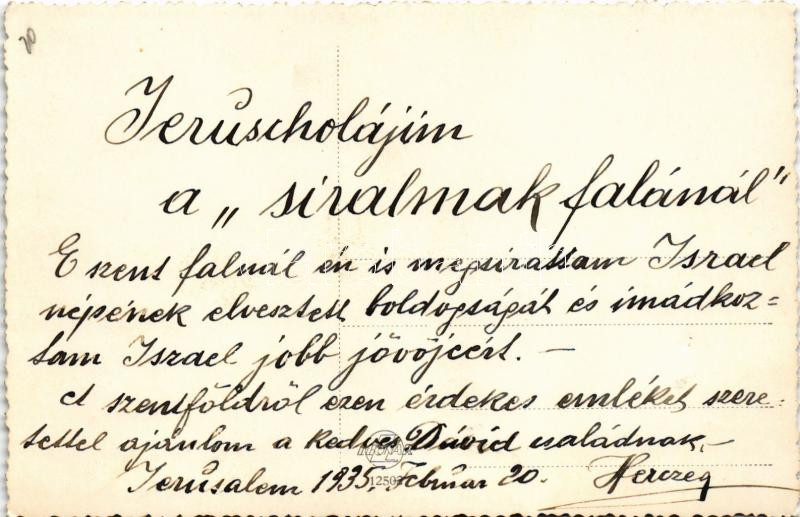 20
Jeruscholájim
a „siralmak falánál"
E szent falnál én is megsirattam Israel
népének elvesztett boldogságát és imádkoz=
tam Iszael jobb jövőjeért. —
A szentföldről ezen érdekes emléket szere=
tettel ajánlom a kedves Dávid családnak. —
Jerusalem 1935. Február 20. Herczeg